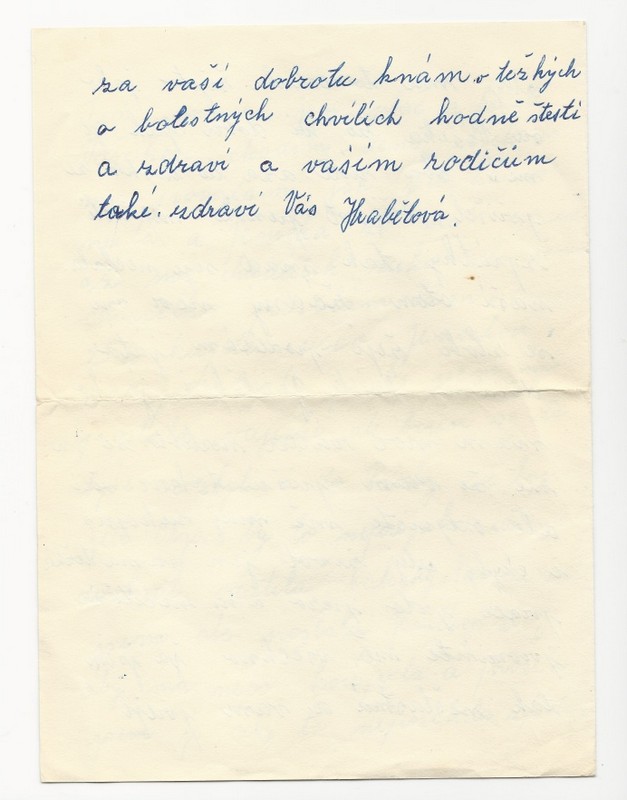 za vaší dobrotu knám v težkých
a bolestných chvílích hodně štestí
a zdraví a vaším rodičům
také. zdraví Vás Hrabětová.